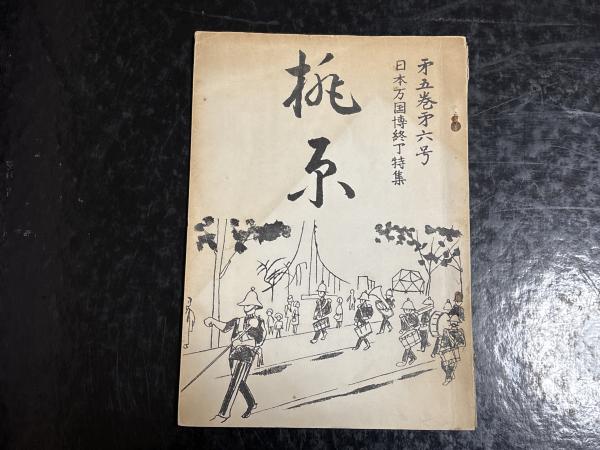 矛五巻矛六号
日本万国博終了特集
桃原